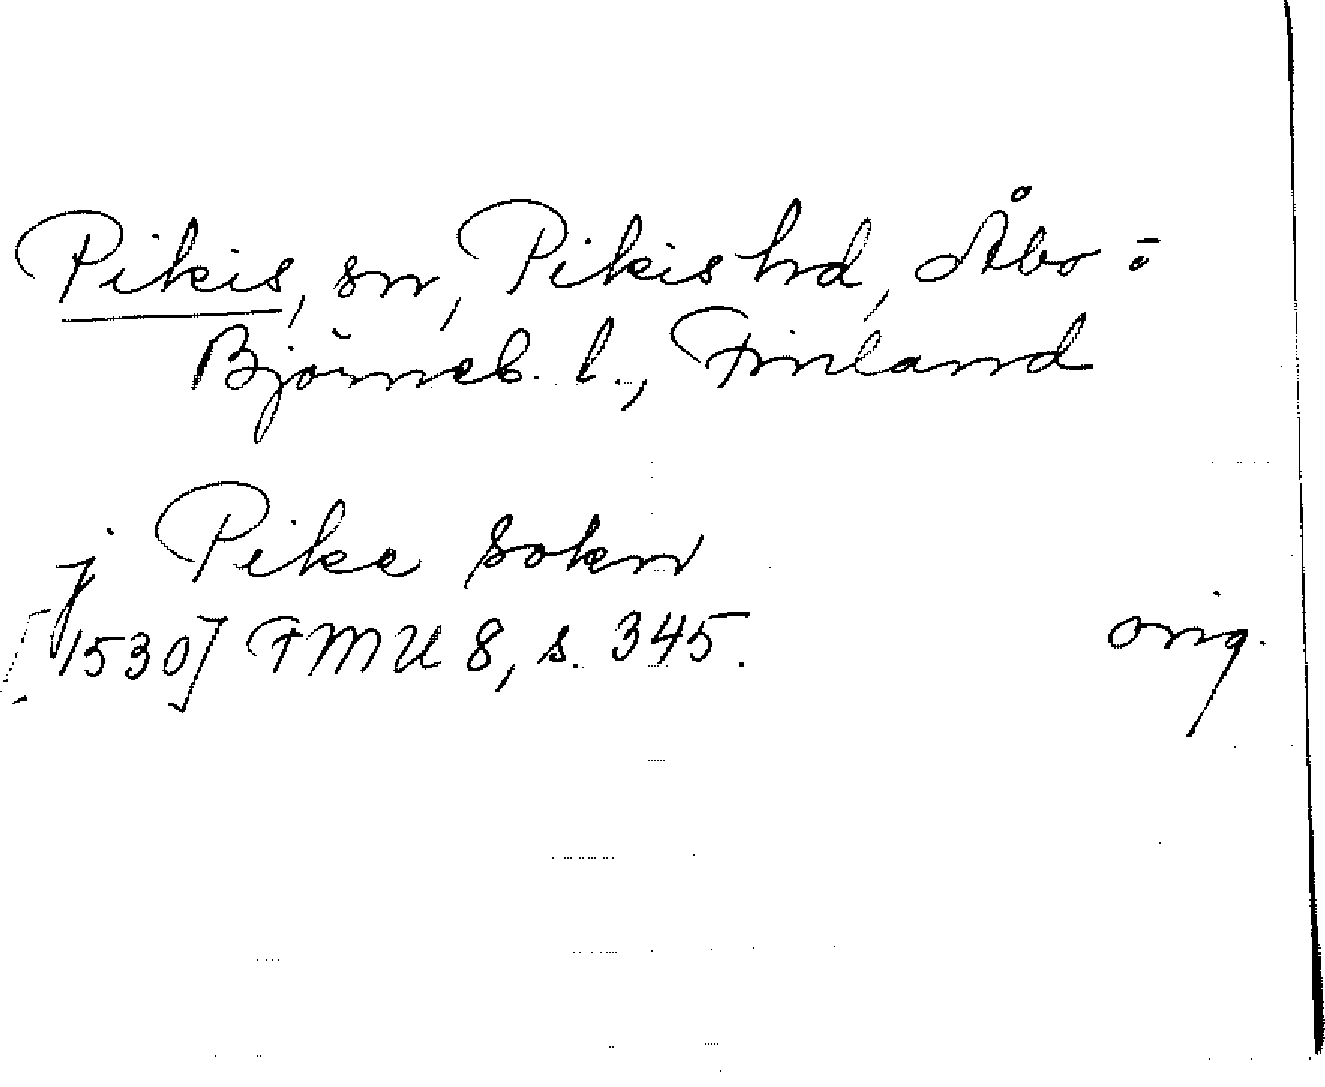 Pikis, sn, Pikis hd, Åbo o
Björneb. l., Finland
j Pike sokn
[1530] FMU 8, s. 345. orig.